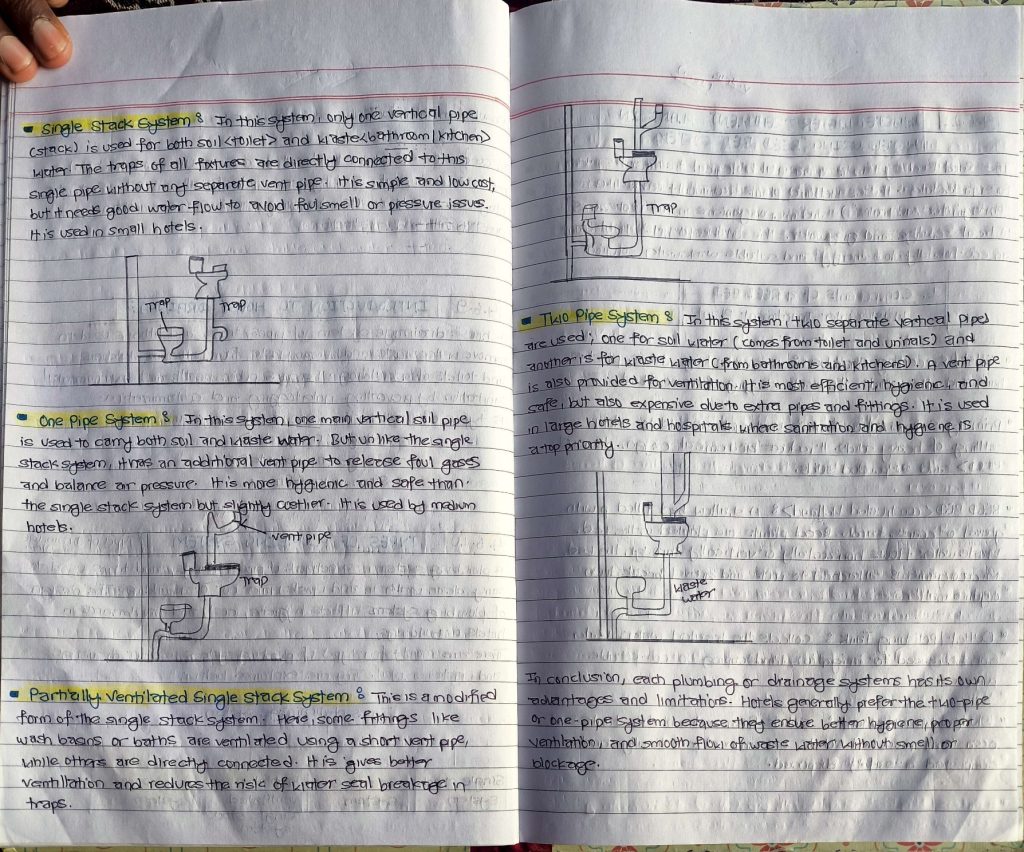 ▪ Single Stack System : In this system, only one vertical pipe
(stack) is used for both soil <toilet> and waste <bathroom | kitchen>
water. The traps of all fixtures are directly connected to this
single pipe without any separate vent pipe. It is simple and low cost,
but it needs good water flow to avoid foul smell or pressure issus.
It is used in small hotels.
Trap
Trap
▪ One Pipe System : In this system, one main vertical soil pipe
is used to carry both soil and waste water. But unlike the single
stack system, it has an additional vent pipe to release foul gases
and balance air pressure. It is more hygienic and safe than
the single stack system but slightly costlier. It is used by medium
hotels.
vent pipe
Trap
▪ Partially Ventilated Single Stack System : This is a modified
form of the single stack system. Here, some fittings like
wash basins or baths are ventilated using a short vent pipe,
while others are directly connected. It is gives better
ventilation and reduces the risk of water seal breakage in
traps.
Trap
▪ Two Pipe System : In this system, two separate vertical pipes
are used; one for soil water (comes from toilet and urinals) and
another is for waste water (from bathrooms and kitchens). A vent pipe
is also provided for ventilation. It is most efficient, hygienic, and
safe, but also expensive due to extra pipes and fittings. It is used
in large hotels and hospitals where sanitation and hygiene is
a top priority.
waste
water
In conclusion, each plumbing or drainage systems has its own
advantages and limitations. Hotels generally prefer the two-pipe
or one-pipe system because they ensure better hygiene, proper
ventilation, and smooth flow of waste water without smell or
blockage.